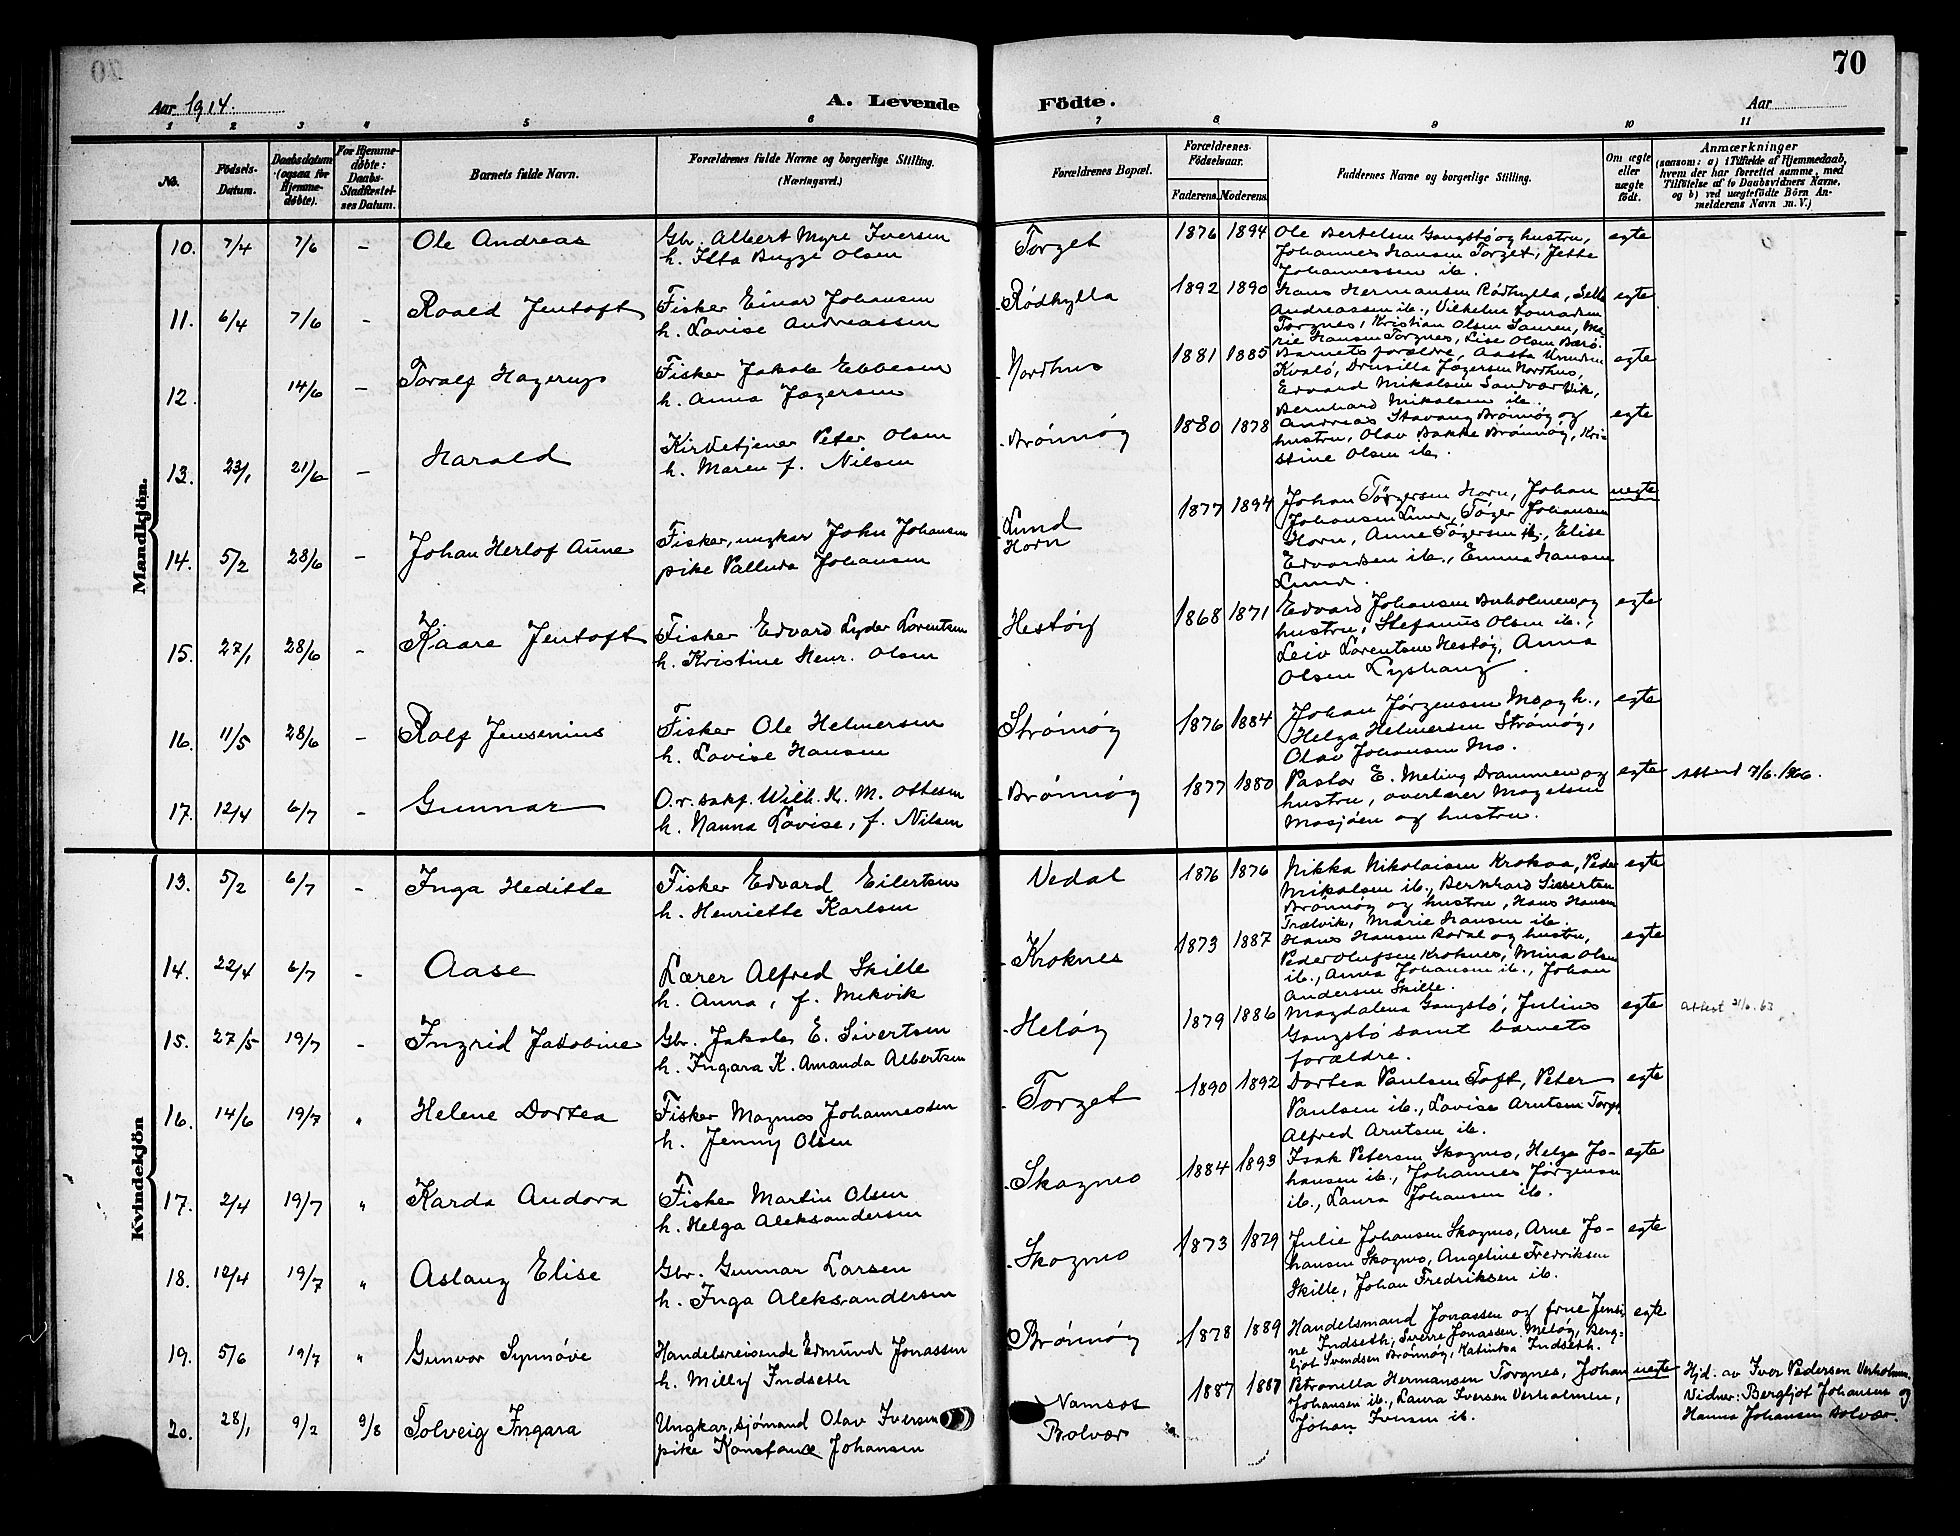 70
Aar 1914.
A. Levende Födte.
Aar
1 2 3 4 5 6 7 8 9 10 11
No.
Födsels-Datum.
Daabsdatum (ogsaa for Hjemme-døbte).
For Hjemme-døbte: Daabs-Stadfæstel-ses Datum.
Barnets fulde Navn.
Forældrenes fulde Navne og borgerlige Stilling. (Næringsvei.)
Forældrenes Bopæl.
Forældrenes Födselsaar.
Faderens. Moderens.
Faddernes Navne og borgerlige Stilling.
Om ægte eller uægte født.
Anmærkninger
(saasom: a) i Tilfælde af Hjemmedaab,
hvem der har forrettet samme, med
Tilføielse af to Daabsvidners Navne,
og b) ved uægtefödte Börn An-
melderens Navn m. V.)
Mandkjön.
10. 7/4 7/6 - Ole Andreas
Gbr. Albert Myre Iversen
h. Ilta Bugge Olsen
Torget 1876 1894
Ole Bertelsen Gangstø og hustru,
Johannes Hansen Torget, Jette
Johannessen ib.
egte
11. 6/4 7/6 - Roald Jentoft
Fisker Einar Johansen
h. Lovise Andreassen
Rødhylla 1892 1890
Hans Hermansen Rødhylla,
Andreassen ib., Vilhelm Konradsen
Torgnes, Kristian Olsen Sauren, Ma-
rie Hansen Torgnes, Lise Olsen Bærø.
egte
12. 14/6 - Toralf Hagerup
Fisker Jakob Ebbesen
h. Anna Jægersen
Nordhus 1881 1885
Barnets forældre, Aasta
Kvalø, Drusilla Jægersen Nordhus,
Edvard Mikalsen Sandvær Vik,
Bernhard Mikalsen ib.
egte
13. 23/1 21/6 - Harald
Kirketjener Peter Olsen
h. Maren f. Nilsen
Brönnöy 1880 1878
Andreas Stavang Brönnöy og
hustru, Olav Bakke Brönnöy, Kri-
stine Olsen ib.
egte
14. 5/2 28/6 - Johan Herlof Aune
Fisker, ungkar John Johansen
pike Palluda Johansen
Lund
Horn
1877 1894
Johan Törgersen Horn, Johan
Johansen Lund, Töger Johansen
Horn, Anne Tögersen ib., Elise
Edvardsen ib., Emma Hansen
Lund.
uegte
15. 27/1 28/6 - Kaare Jentoft
Fisker Edvard Lyder Lorentsen
h. Kristine Henr. Olsen
Hestöy 1868 1871
Edvard Johansen Buholmen og
hustru, Stefanus Olsen ib.,
Leiv Lorentsen Hestöy, Anna
Olsen Lyshaug.
egte
16. 11/5 28/6 - Rolf Jensenius
Fisker Ole Helmersen
h. Lovise Hansen
Strömöy 1876 1884
Johan Jørgensen Mo og h.,
Helga Helmersen Strömöy,
Olav Johansen Mo.
egte
17. 12/4 6/7 - Gunnar
O.r. sakf. Wilh. K. M. Ottesen
h. Nanna Lovise, f. Nilsen
Brönnöy 1877 1880
Pastor E. Meling Drammen og
hustru, overlærer Magelsen
Mosjöen og hustru.
egte
Attest 7/6.1966.
Kvindekjön
13. 5/2 6/7 - Inga Heditte
Fisker Edvard Eilertsen
h. Henriette Karlsen
Vedal 1876 1876
Nikka Nikolaisen Krokaa, Peder
Mikalsen ib., Bernhard Sivertsen
Brönnöy og hustru, Hans Hansen
Trælvik, Marie Hansen ib.
egte
14. 22/4 6/7 - Aase
Lærer Alfred Skille
h. Anna, f. Mekvik
Kroknes 1873 1887
Hans Hansen Rodal og hustru,
Peder Olufsen Kroknes, Mina Olsen
ib., Anna Johansen ib., Johan
Andersen Skille.
egte
15. 27/5 19/7 - Ingrid Jakobine
Gbr. Jakob E. Sivertsen
h. Ingara K. Amanda Albertsen
Helöy 1879 1886
Magdalena Gangstö, Julius
Gangstö samt barnets
forældre.
egte
Attest 21/6.63
16. 14/6 19/7 " Helene Dortea
Fisker Magnus Johannessen
h. Jenny Olsen
Torget 1890 1892
Dortea Paulsen Toft, Peter
Paulsen ib., Lovise Arntsen Torg.
Alfred Arntsen ib.
egte
17. 2/4 19/7 " Karda Andora
Fisker Martin Olsen
h. Helga Aleksandersen
Skogmo 1884 1893
Isak Petersen Skogmo, Helga Jo-
hansen ib., Johannes Jørgensen
ib., Laura Johansen ib.
egte
18. 12/4 19/7 " Aslaug Elise
Gbr. Gunnar Larsen
h. Inga Aleksandersen
Skogmo 1873 1879
Julie Johansen Skogmo, Arne Jo-
hansen Skogmo, Angeline Fredriksen
Skille, Johan Fredriksen ib.
egte
19. 5/6 19/7 " Gunvor Synnöve
Handelsreisende Edmund Jonassen
h. Milly Indseth
Brönnöy 1878 1889
Handelsmand Jonassen og frue, Jensi-
ne Indseth, Sverre Jonassen Melöy, Berg-
ljot Svendsen Brönnöy, Katinka Indseth.
egte
20. 28/1 9/2 9/8 Solveig Ingara
Ungkar, sjömand Olav Iversen
pike Konstance Johansen
Namsos
Bolvær
1887 1887
Petronella Hermansen Torgnes, Johan
Johansen ib., Laura Iversen Verholmen,
Johan Iversen ib.
uegte
Hjd. av Iver Pedersen Verholmen.
Vidner: Bergljot Johansen og
Hanna Johansen Bolvær.